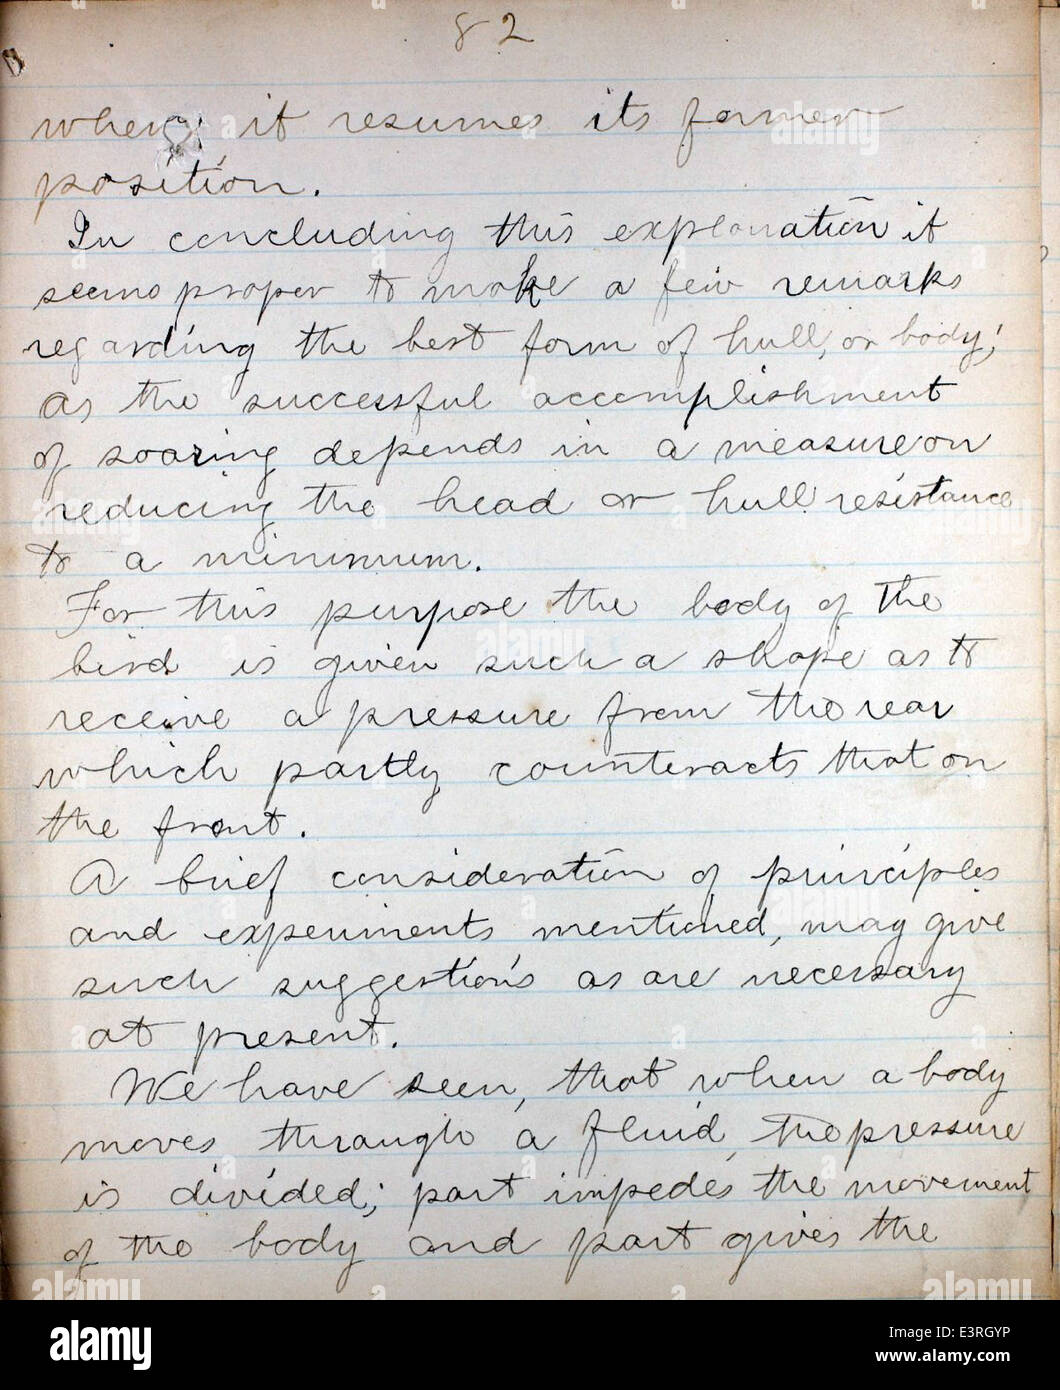 82
when it resumes its former
position.
In concluding this explanation it
seems proper to make a few remarks
regarding the best form of hull, or body;
as the successful accomplishment
of soaring depends in a measure on
reducing the head or hull resistance
to a minimum.
For this purpose the body of the
bird is given such a shape as to
receive a pressure from the rear
which partly counteracts that on
the front.
A brief consideration of principles
and experiments mentioned, may give
such suggestions as are necessary
at present.
We have seen, that when a body
moves through a fluid, the pressure
is divided; part impedes the movement
of the body and part gives the
alamy
Image ID: E3RGYP
www.alamy.com